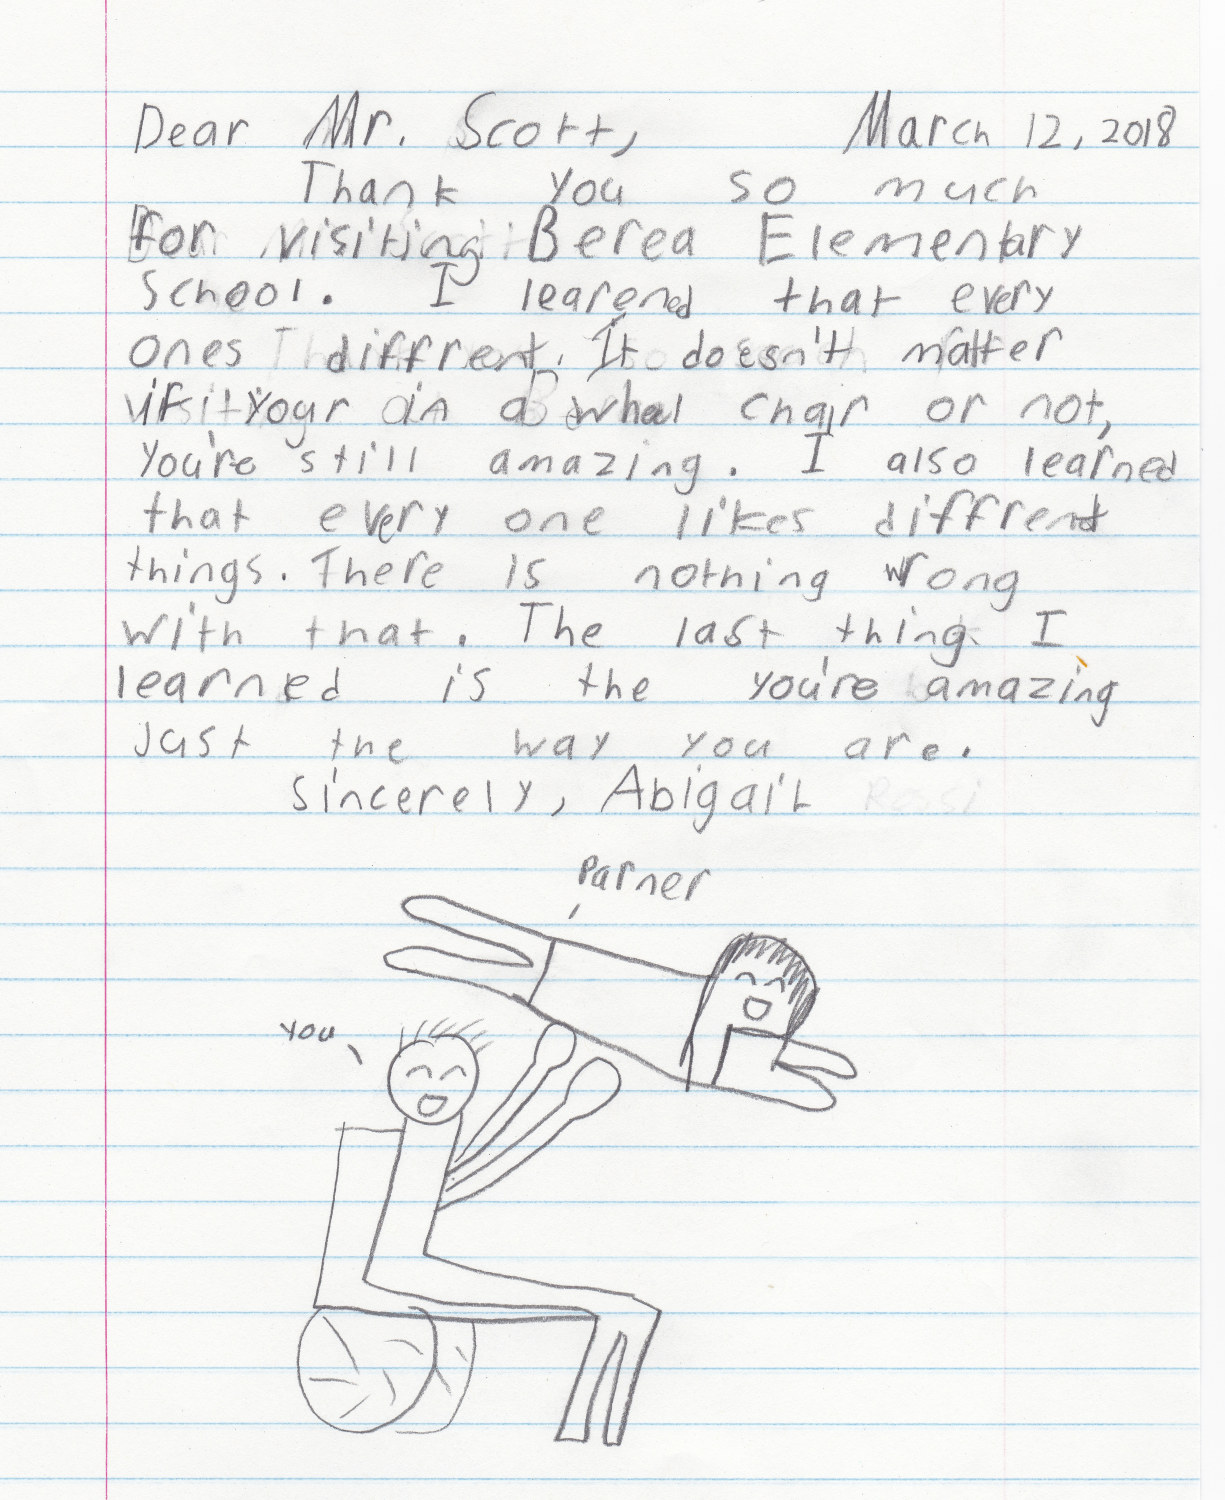 Dear Mr. Scott, March 12, 2018
Thank you so much
for visiting Berea Elementary
School. I learened that every
ones diffrent. It doesn't matter
if your in a wheel chair or not,
you're still amazing. I also learned
that every one likes diffrent
things. There is nothing wrong
with that. The last thing I
learned is the you're amazing
just the way you are.
Sincerely, Abigail
Parner
you